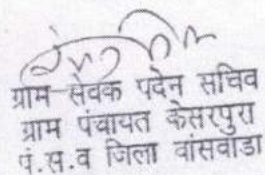 ग्राम सेवक पदेन सचिव
ग्राम पंचायत केसरपुरा
पं.स.व जिला बांसवाडा